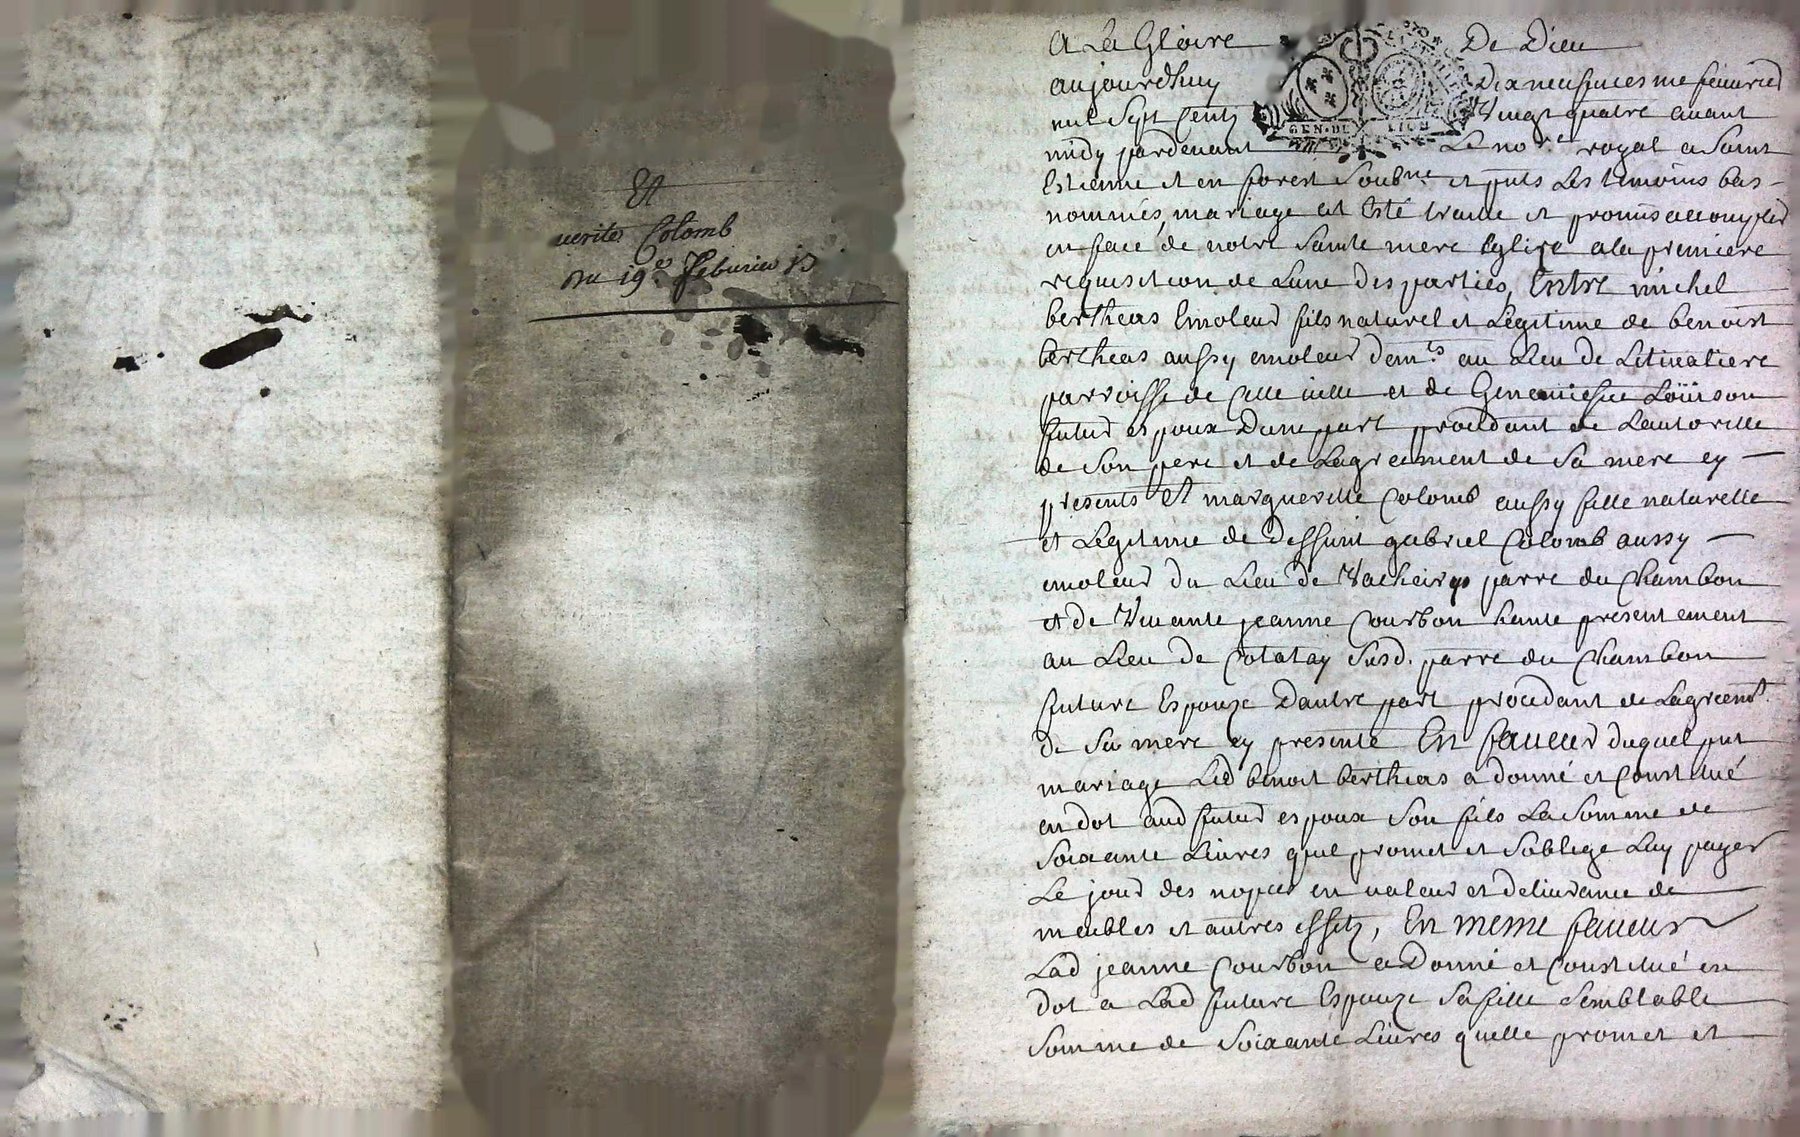 Et
uerite Colomb
Du 19e feburier 17
A La Gloire De Dieu
aujourdhuy Dixneufuiesme feuurier
mil Sept Centz Vingt quatre auant
midy pardeuant Le nore royal a Saint
Estienne et en forest Soubne et puis Les temoins bas-
nommés, mariage at Esté traité et promis accomplir
en face de notre Sainte mere Eglise ala premiere
requisition de Lune des parties, Entre michel
bertheas Emoleur fils naturel et Legitime de benoist
bertheas aussy emoleur demts au Lieu de Letiualiere
parroisse de Cette uille et de Geneuiefue Loüison
futur espoux Dune part procedant de Lautoritte
de Son pere et de Lagreement de Sa mere cy -
presents Et margueritte Colomb aussy fille naturelle
et Legitime de deffunt gabriel Colomb aussy -
emoleur du Lieu de Vacheirys parre du Chambon
et de Viuante jeanne Courbon hante presentement
au Lieu de Cotatay Susd. parre du Chambon
future Espouze Dautre part procedant de Lagreemt
de Sa mere cy presente En faueur duquel fut
mariage Led benoit bertheas a donné et Constitué
en dot aud futur espoux Son fils La Somme de
Soixante Liures quil promet et Soblige Luy payer
Le jour des nopces en ualeur et deliurance de
meubles et autres effetz, En meme faueur
Lad jeanne Courbon a Donné et Constitué en
dot a Lad future Espouze Sa fille Semblable
Somme de Soixante Liures quelle promet et